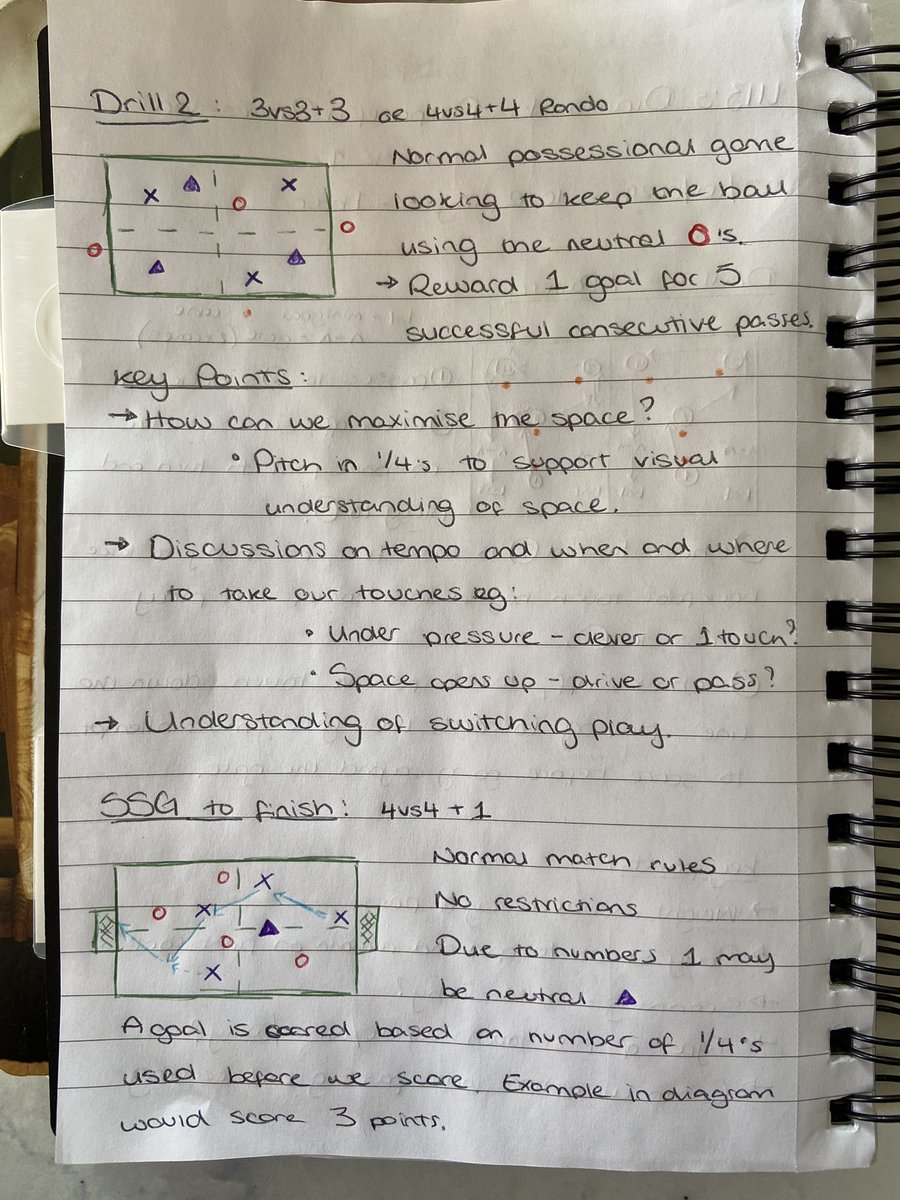 Drill 2: 3vs3+3 or 4vs4+4 Rondo
Normal possessional game
looking to keep the ball
using the neutral O's.
→ Reward 1 goal for 5
successful consecutive passes.
Key Points:
→ How can we maximise the space?
• Pitch in 1/4's to support visual
understanding of space.
→ Discussions on tempo and when and where
to take our touches eg:
• Under pressure - clever or 1 touch?
• Space opens up - drive or pass?
→ Understanding of switching play.
SSG to finish: 4vs4 + 1
Normal match rules
No restrictions
Due to numbers 1 may
be neutral ▲
A goal is scored based on number of 1/4's
used before we score. Example in diagram
would score 3 points.